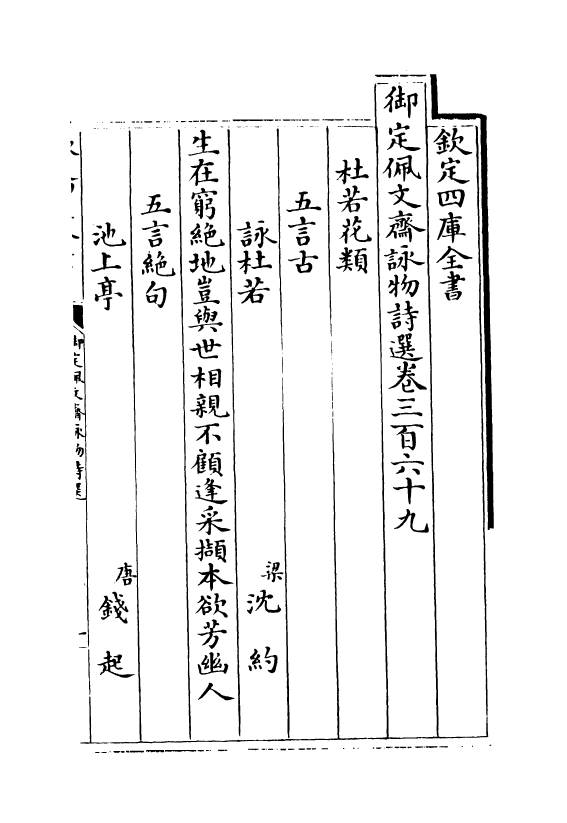 欽定四庫全書
御定佩文齋詠物詩選卷三百六十九
杜若花類
五言古
詠杜若 梁 沈約
生在窮絶地豈與世相親不顧逢采擷本欲芳幽人
五言絶句
池上亭 唐 錢起
御定佩文齋詠物詩選
一